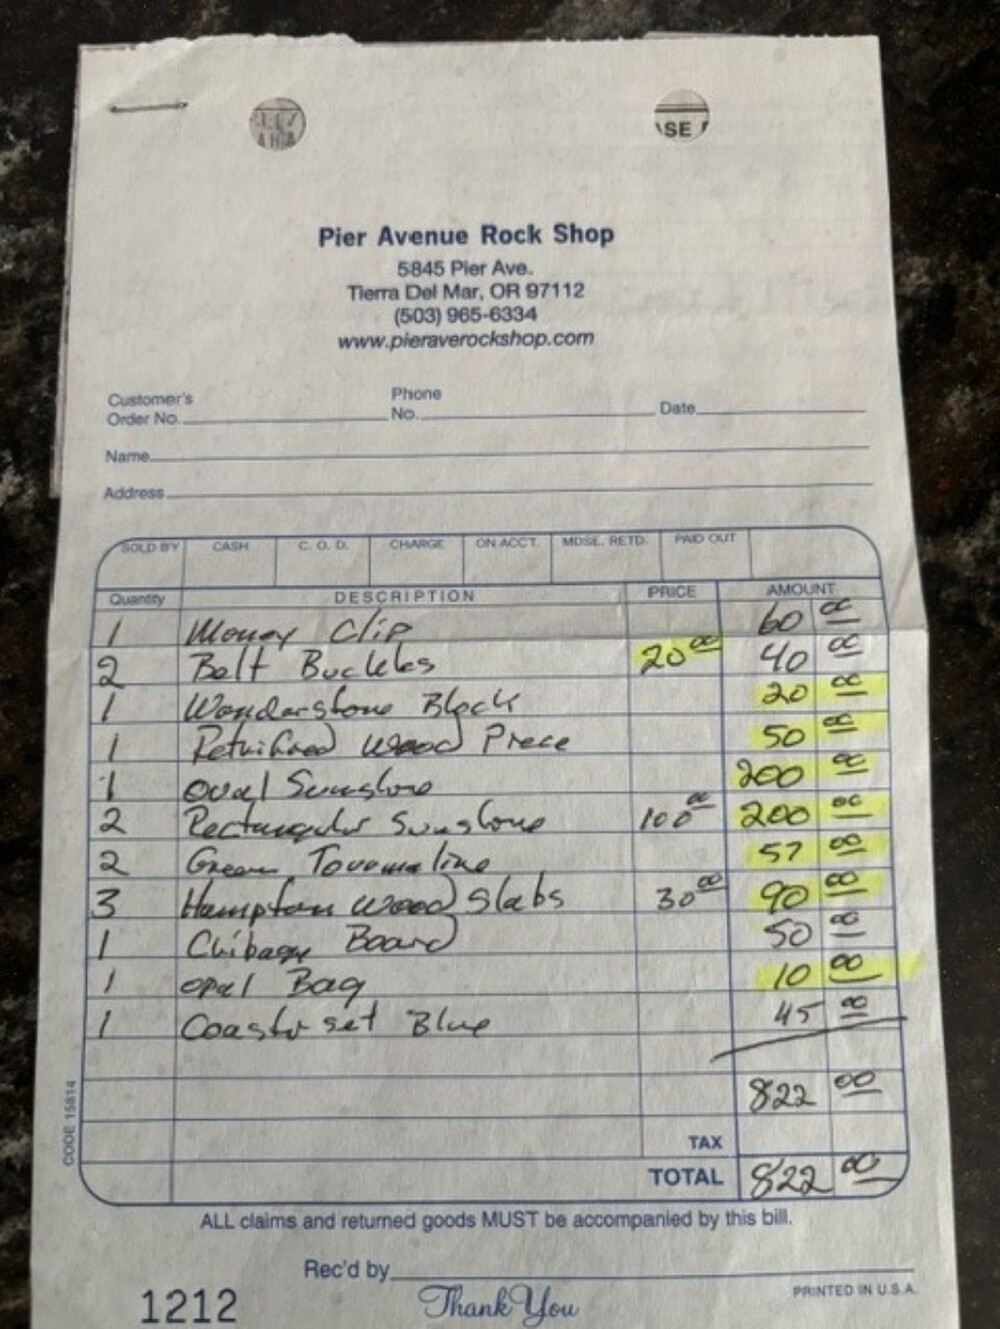 ASE
Pier Avenue Rock Shop
5845 Pier Ave.
Tierra Del Mar, OR 97112
(503) 965-6334
www.pieraverockshop.com
Customer's Order No. Phone No. Date
Name
Address
SOLD BY CASH C. O. D. CHARGE ON ACCT. MDSE. RETD. PAID OUT
Quantity DESCRIPTION PRICE AMOUNT
1 Money Clip 60 00
2 Belt Buckles 20 00 40 00
1 Wonderstone Block 20 00
1 Petrified Wood Piece 50 00
1 Oval Sunstone 200 00
2 Rectangular Sunstone 100 00 200 00
2 Green Tourmaline 57 00
3 Hampton Wood Slabs 30 00 90 00
1 Board 50 00
1 Opal Bag 10 00
1 Coaster set Blue 45 00
822 00
TAX
TOTAL 822 00
CODE 15814
ALL claims and returned goods MUST be accompanied by this bill.
Rec'd by
1212 Thank You PRINTED IN U.S.A.